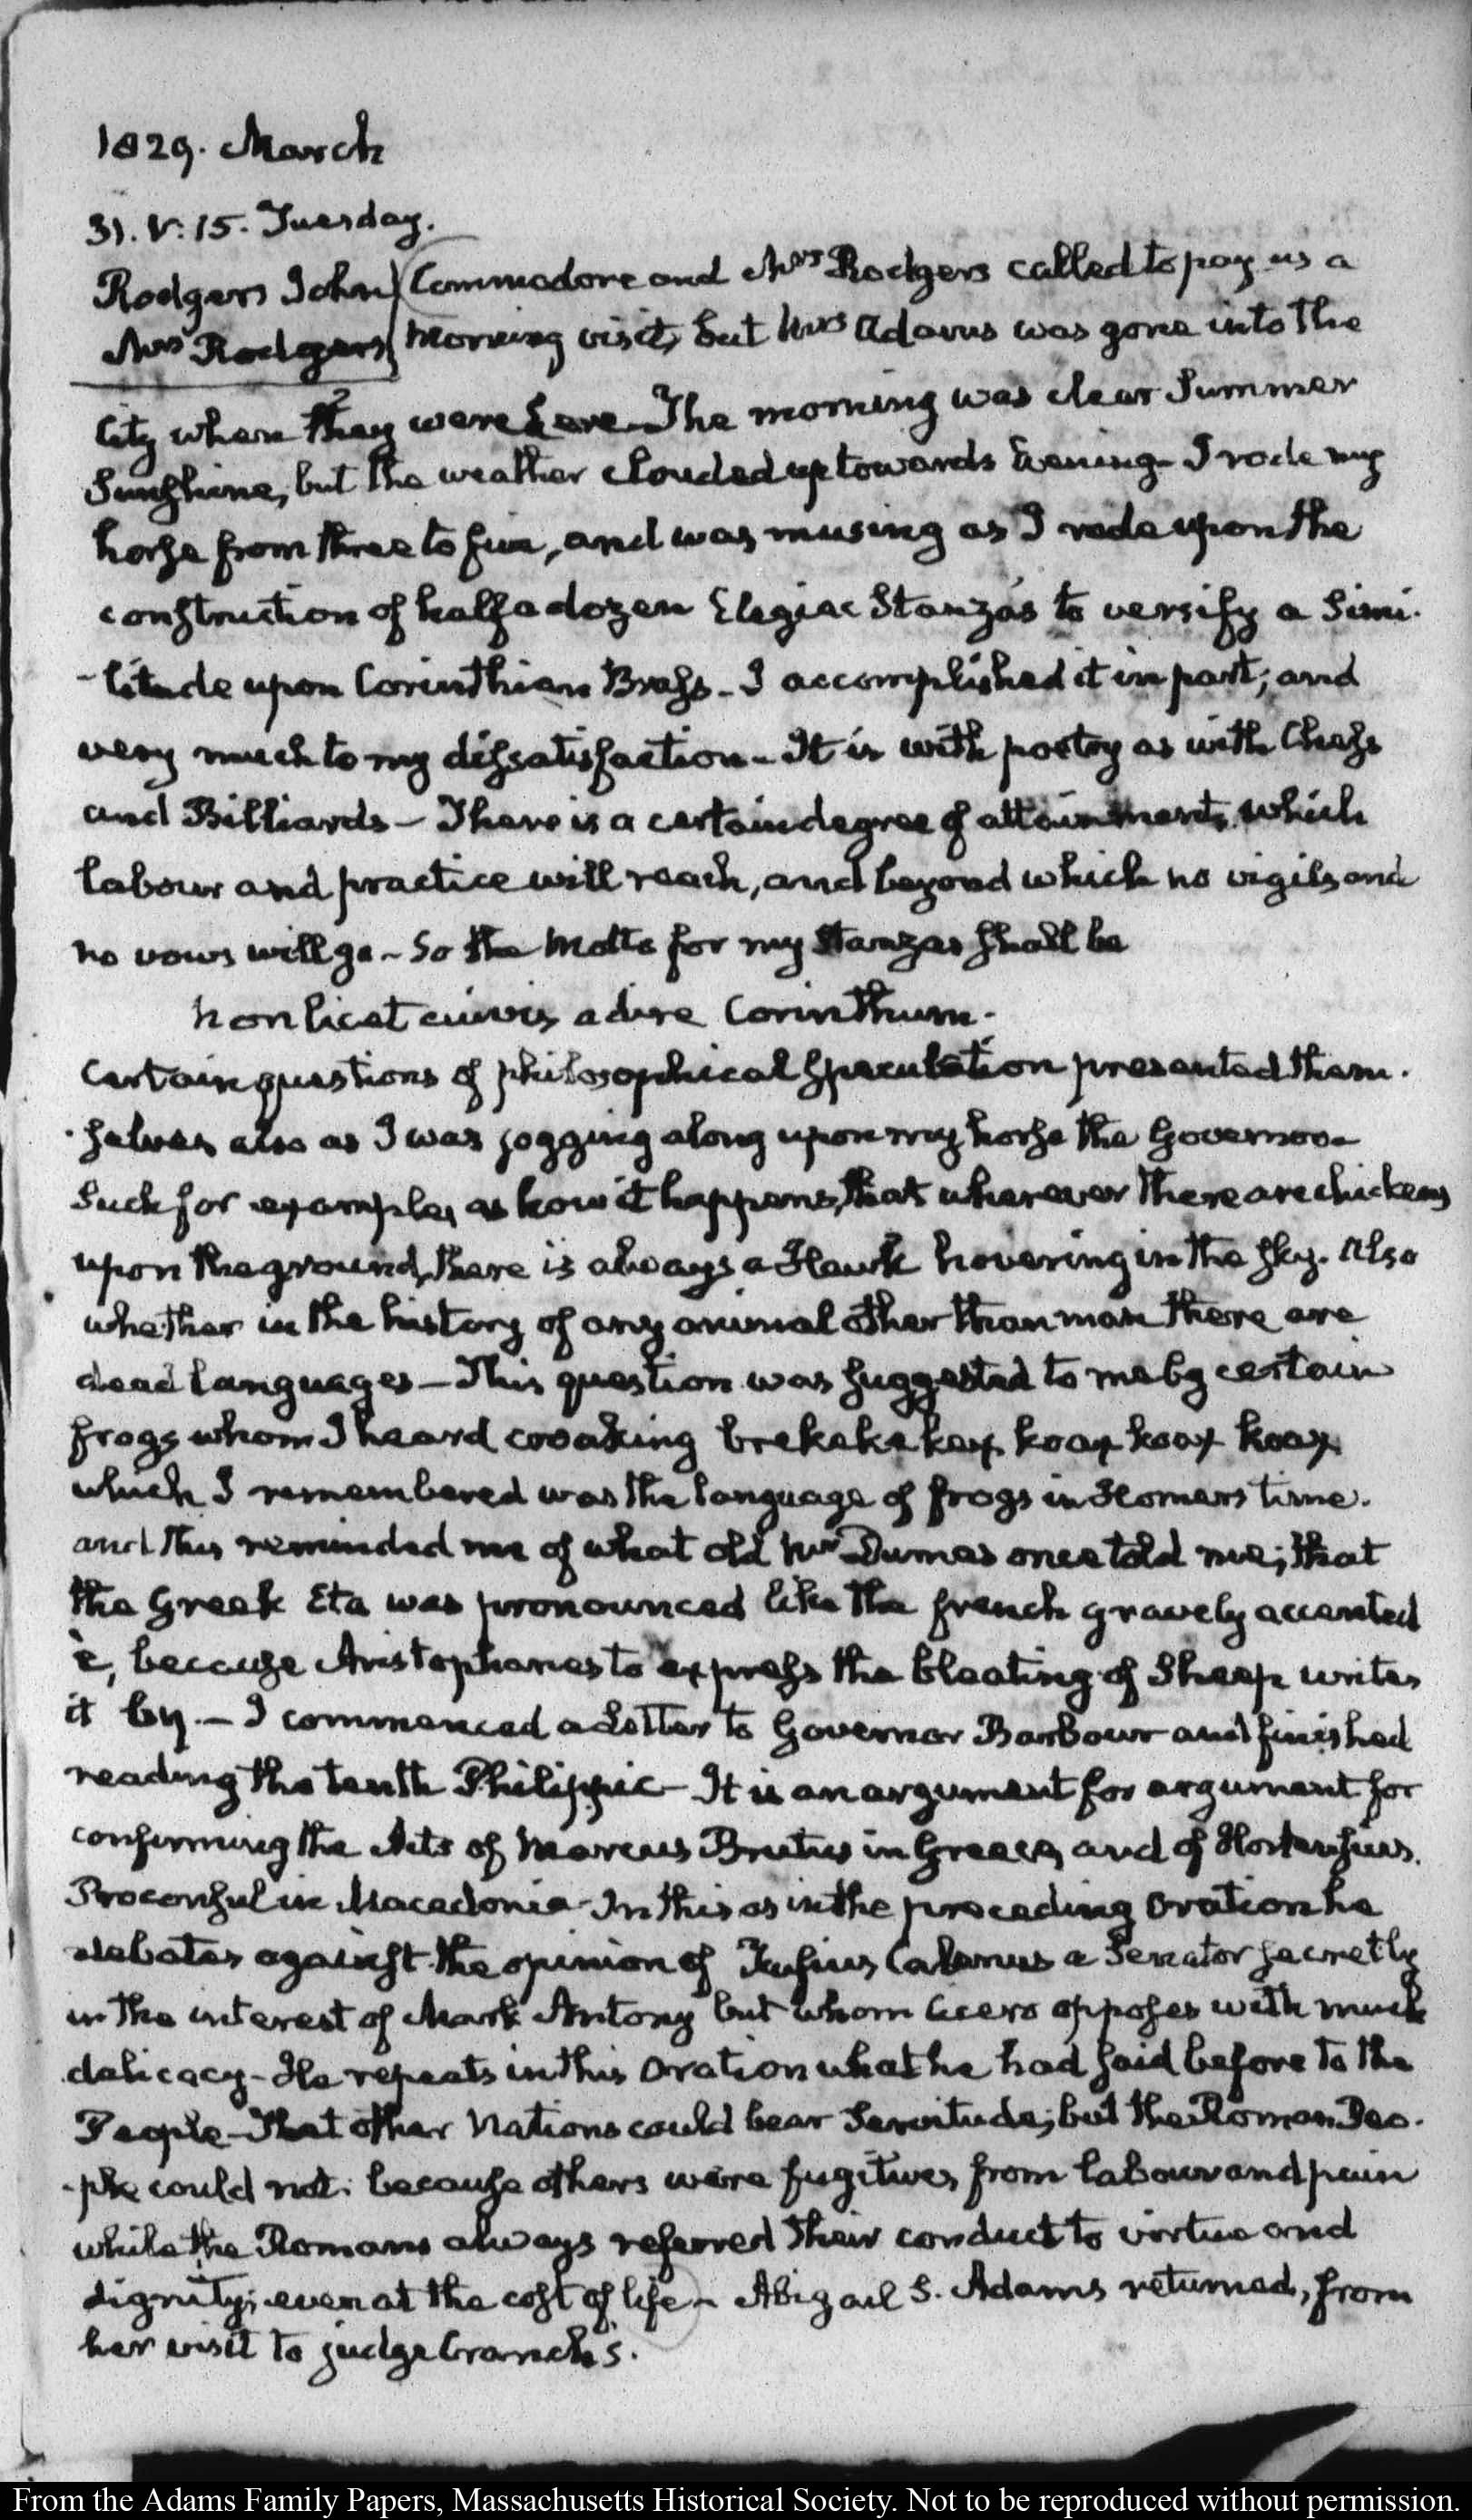 1829. March
31. V: 15. Tuesday.
Rodgers John Commodore and Mrs Rodgers called to pay us a
Mrs Rodgers morning visit, but Mrs Adams was gone into the
2
City when they were here—The morning was clear Summer
Sunshine, but the weather clouded up towards Evening— I rode my
horse from three to five, and was musing as I rode upon the
construction of half a dozen Elegiac Stanzas to versify a Simi-
-litude upon Corinthian Brass— I accomplished it in part; and
very much to my dissatisfaction— It is with poetry as with Chess
and Billiards— There is a certain degree of attainment, which
labour and practice will reach, and beyond which no vigils and
no vows will go— So the Motto for my Stanzas shall be
Non licet cuivis adire Corinthum.
Certain questions of philosophical speculation presented them-
-selves also as I was jogging along upon my horse the Governor—
Such for example, as how it happens, that wherever there are chickens
upon the ground, there is always a Hawk hovering in the sky. Also
whether in the history of any animal other than man there are
dead languages— This question was suggested to me by certain
frogs whom I heard croaking brekekekex koax koax koax
which I remembered was the language of frogs in Homers time.
and this reminded me of what old Mr Dumas once told me; that
the Greek Eta was pronounced like the french gravely accented
è, because Aristophanes to express the bleating of Sheep writes
it βη.— I commenced a Letter to Governor Barbour and finished
reading the tenth Philippic— It is an argument for argument for
confirming the Acts of Marcus Brutus in Greece, and of Hortensius.
Proconsul in Macedonia— In this as in the preceding Oration he
debates against the opinion of Fufius Calenus a Senator secretly
in the interest of Mark Antony but whom Cicero opposes with much
delicacy— He repeats in this Oration what he had said before to the
People— That other Nations could bear Servitude; but the Roman Peo-
-ple could not: because others were fugitives from labour and pain
while the Romans always referred their conduct to virtue and
dignity; even at the cost of life— Abigail S. Adams returned, from
her visit to judge Cranch's.
From the Adams Family Papers, Massachusetts Historical Society. Not to be reproduced without permission.